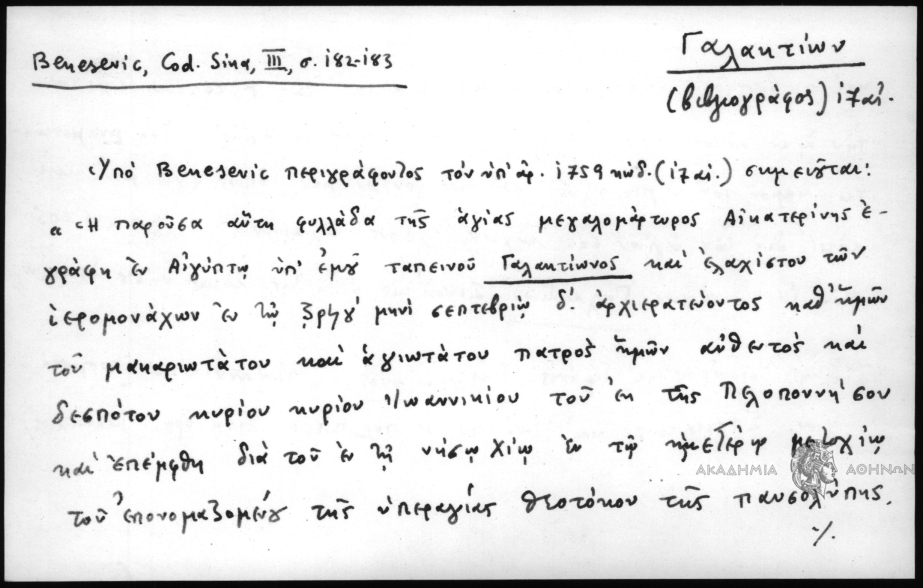 Benesevic, Cod. Sina, III, σ. 182-183
Γαλακτίων
(βιβλιογράφος) 17 αἰ.
Ὑπό Benesevic περιγράφοντος τόν ὑπ' ἀρ. 1759 κώδ. (17 αἰ.) σημειοῦται:
« Ἡ παροῦσα αὕτη φυλλάδα τῆς ἁγίας μεγαλομάρτυρος Αἰκατερίνης ἐ-
γράφη ἐν Αἰγύπτῳ ὑπ' ἐμοῦ ταπεινοῦ Γαλακτίωνος καί ἐλαχίστου τῶν
ἱερομονάχων ἐν τῷ ͵ζρϟγʹ μηνί σεπτεβρίῳ δ΄. ἀρχιερατεύοντος καθ' ἡμῶν
τοῦ μακαριωτάτου καί ἁγιωτάτου πατρός ἡμῶν αὐθεντός καί
δεσπότου κυρίου κυρίου Ἰωαννικίου τοῦ ἐκ τῆς Πελοποννήσου
καί ἐπέμφθη διά τοῦ ἐν τῇ νήσῳ Χίῳ ἐν τῷ ἡμετέρῳ μετοχίῳ
ΑΚΑΔΗΜΙΑ ΑΘΗΝΩΝ
τοῦ ἐπονομαζομένου τῆς ὑπεραγίας θεοτόκου τῆς παυσολύπης.
·/.